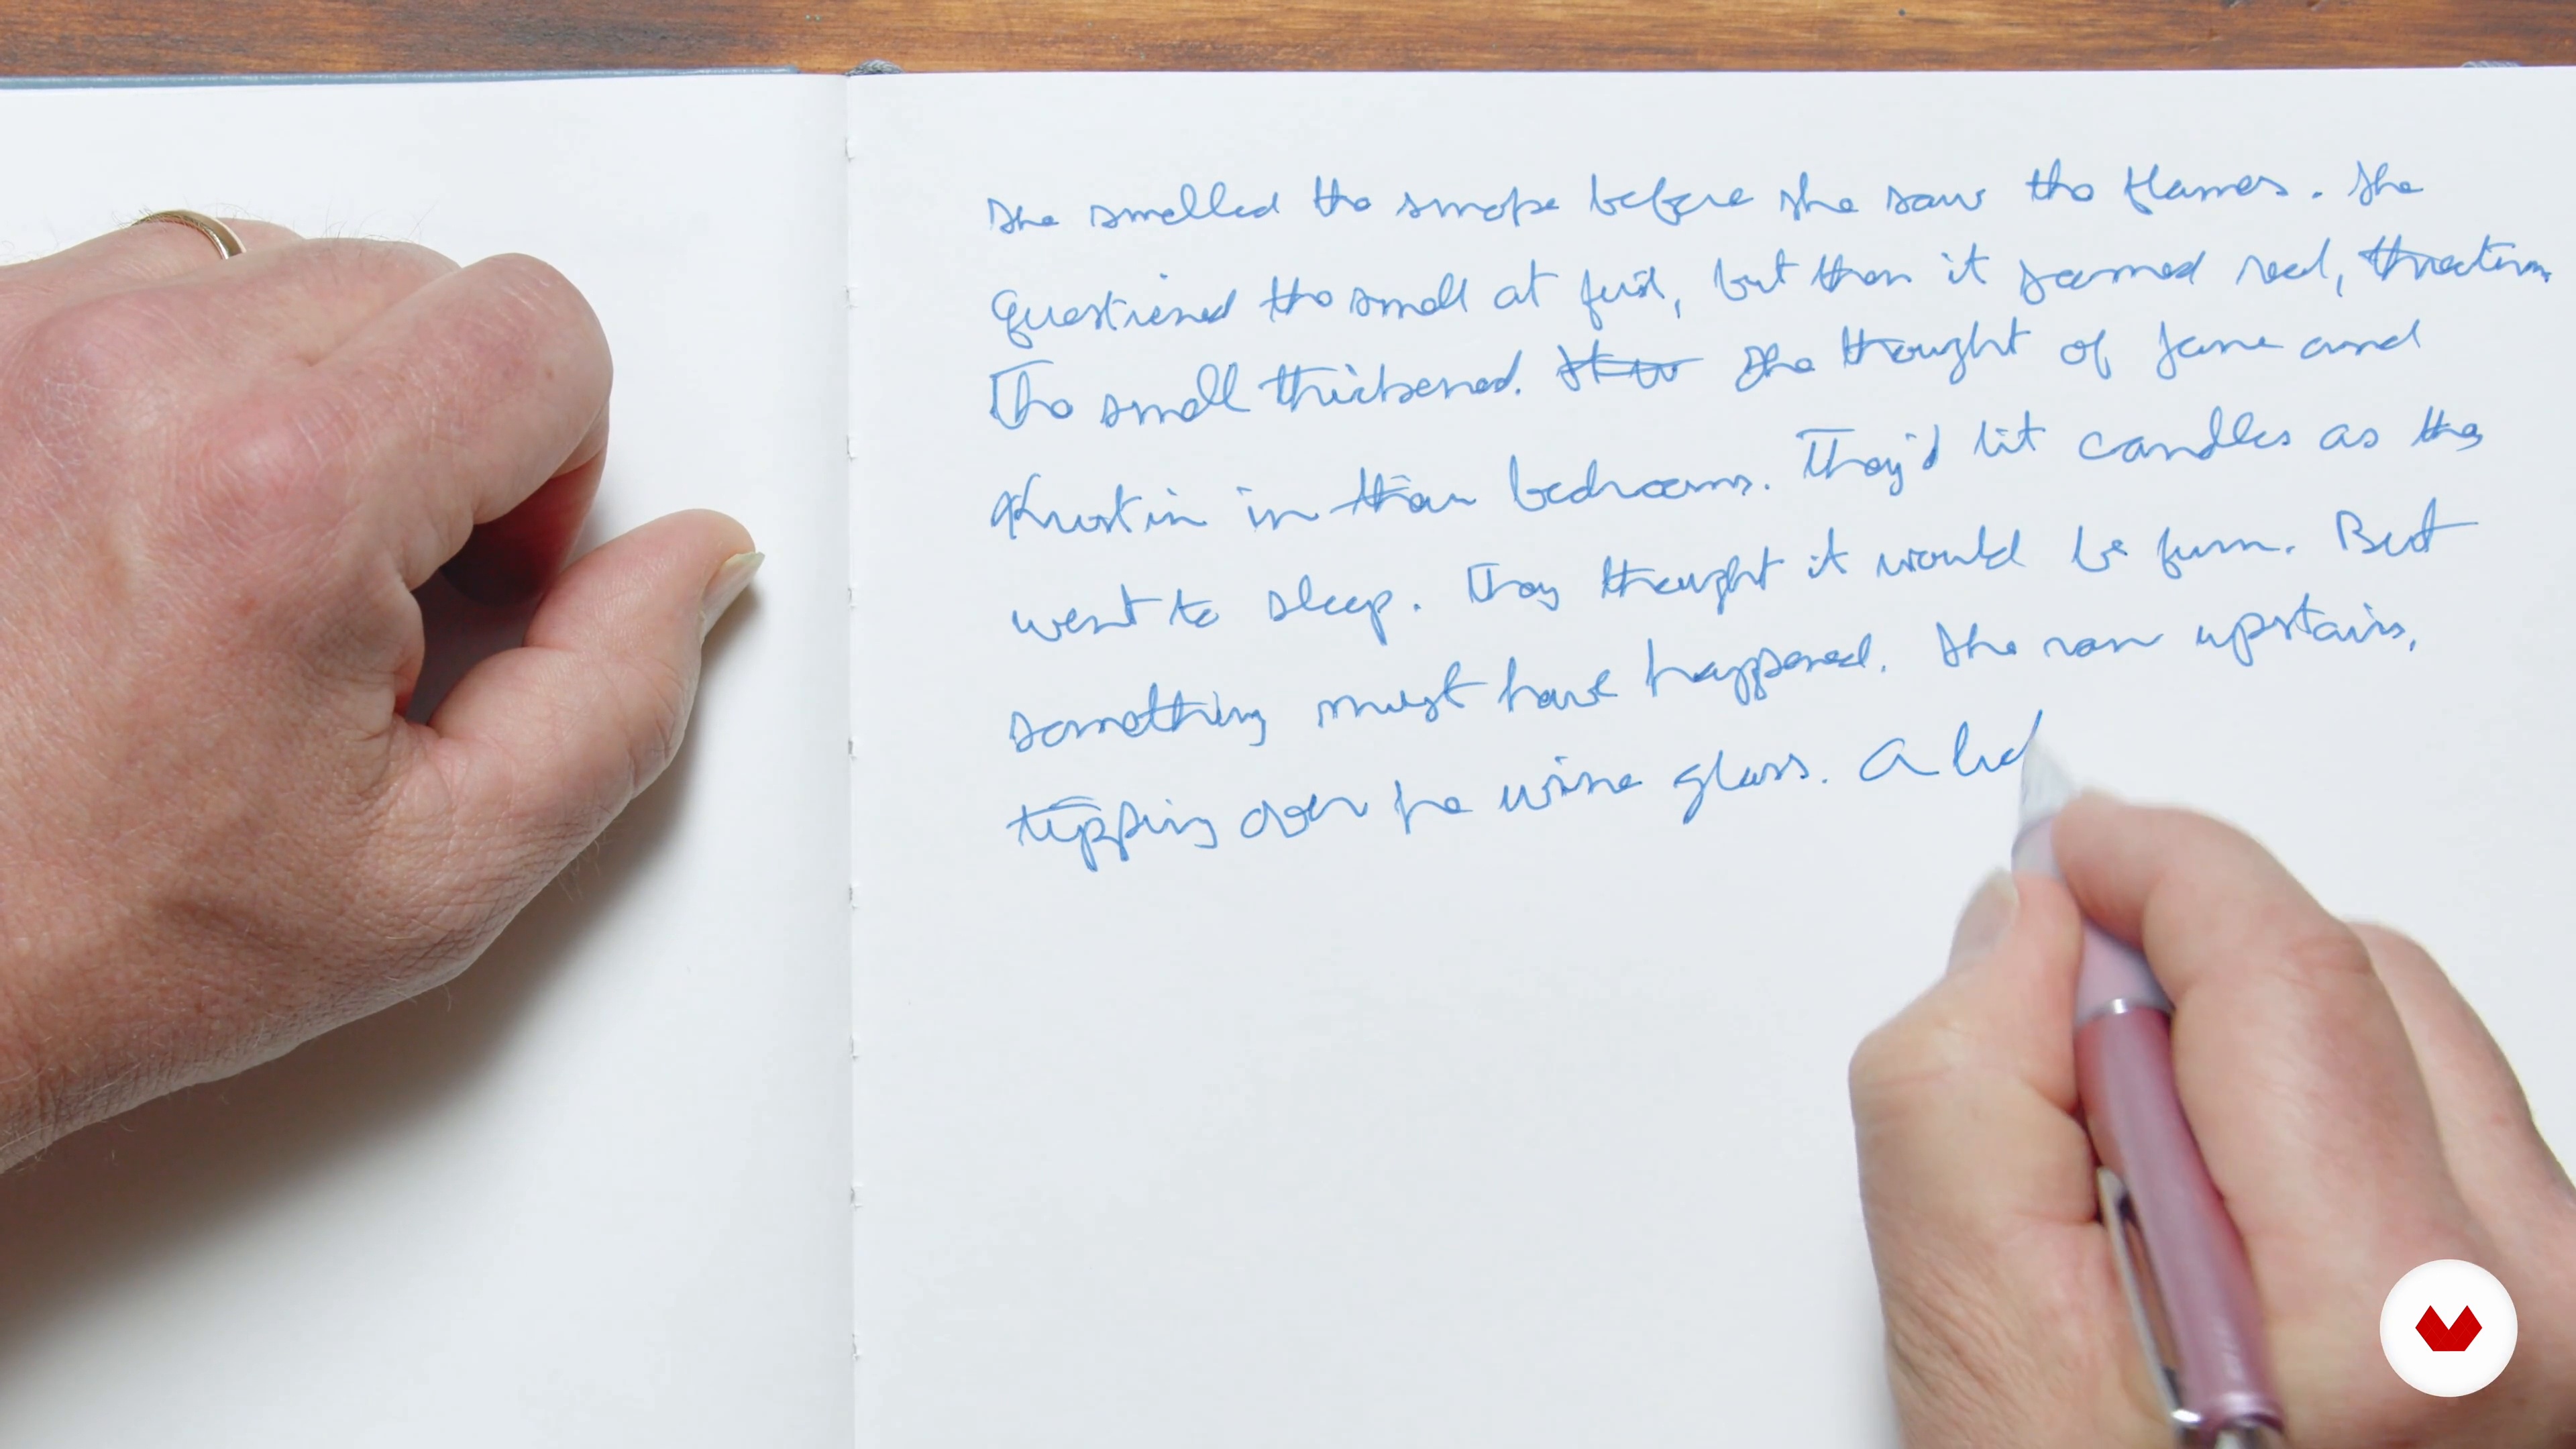 She smelled the smoke before she saw the flames. She
questioned the smell at first, but then it seemed real,
The smell thickened. She thought of Jane and
Kristin in their bedrooms. They'd lit candles as they
went to sleep. They thought it would be fun. But
something must have happened. She ran upstairs,
tipping over her wine glass. A